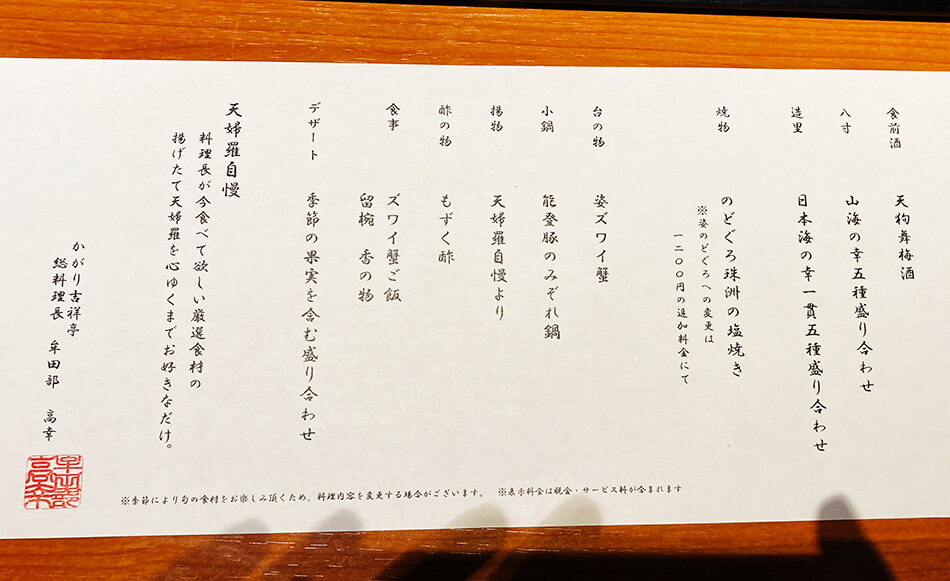 食前酒　天狗舞梅酒
八寸　山海の幸五種盛り合わせ
造里　日本海の幸一貫五種盛り合わせ
焼物　のどぐろ珠洲の塩焼き
※姿のどぐろへの変更は
一二〇〇円の追加料金にて
台の物　姿ズワイ蟹
小鍋　能登豚のみぞれ鍋
揚物　天婦羅自慢より
酢の物　もずく酢
食事　ズワイ蟹ご飯
留椀　香の物
デザート　季節の果実を含む盛り合わせ
天婦羅自慢
料理長が今食べて欲しい厳選食材の
揚げたて天婦羅を心ゆくまでお好きなだけ。
かがり吉祥亭
総料理長　牟田部　高幸
※季節により旬の食材をお楽しみ頂くため、料理内容を変更する場合がございます。　※表示料金は税金・サービス料が含まれます